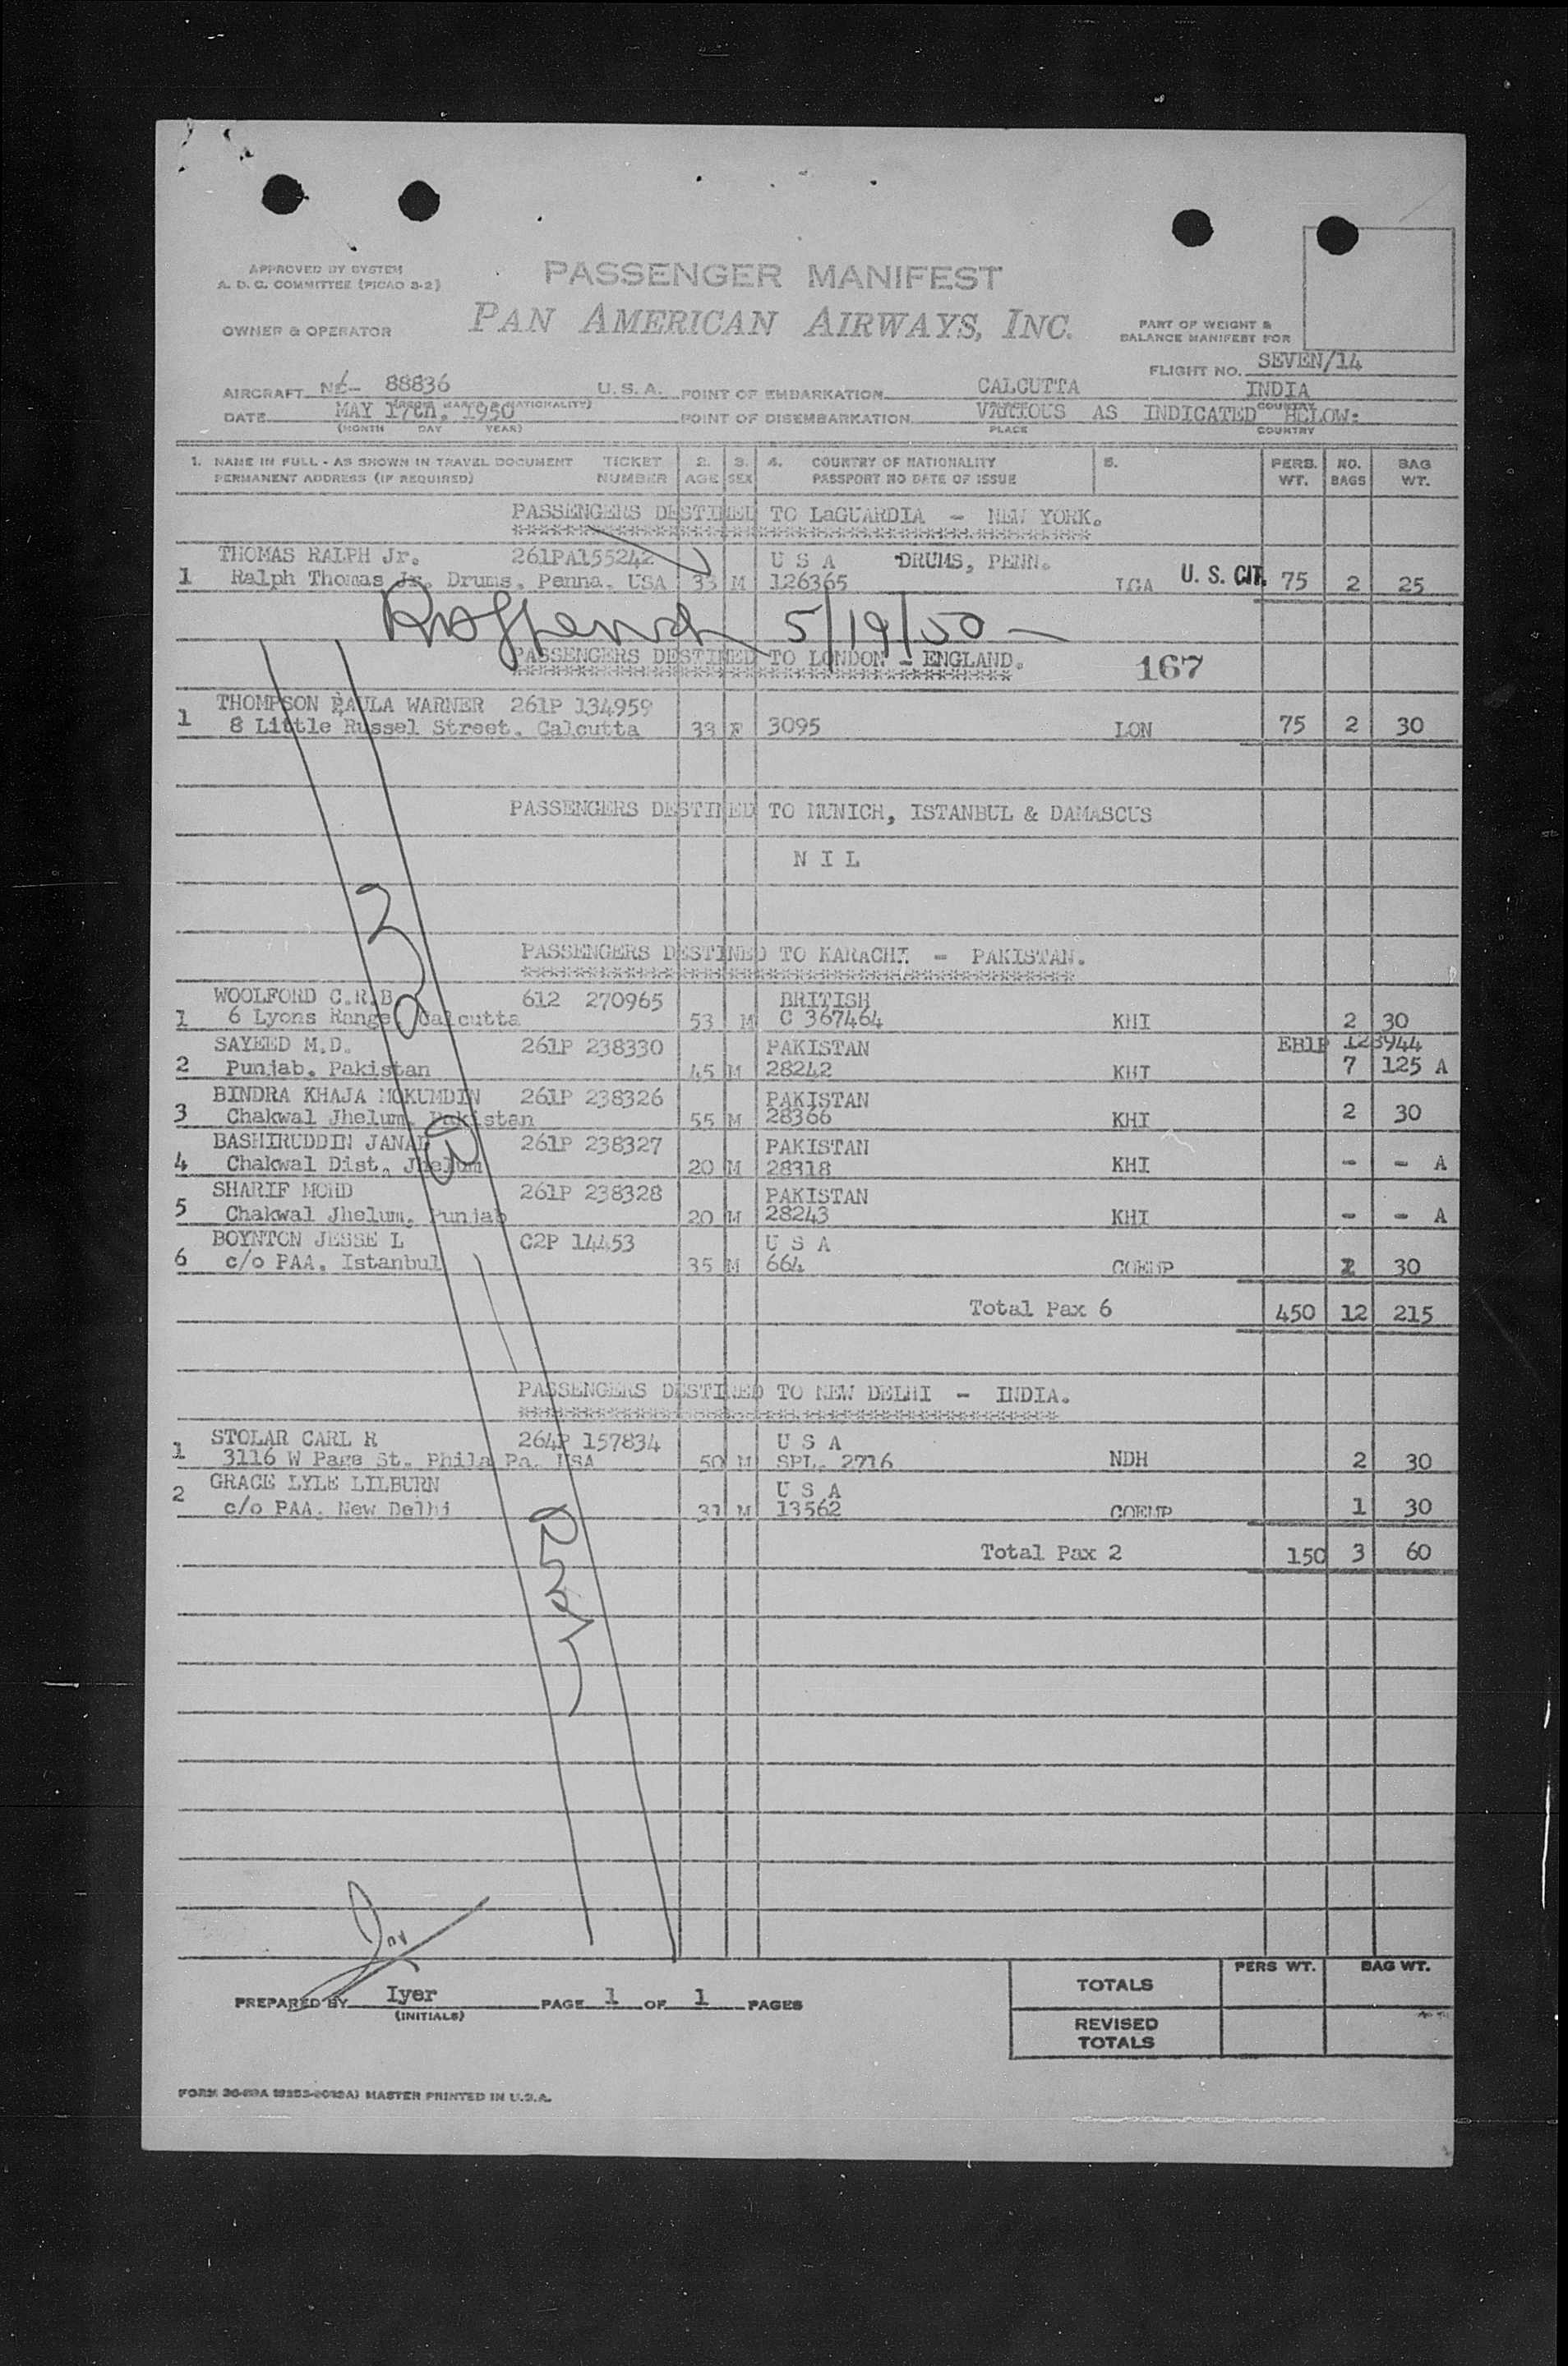 APPROVED BY SYSTEM
A. D. C. COMMITTEE (PICAO 3-2)
PASSENGER MANIFEST
OWNER & OPERATOR
PAN AMERICAN AIRWAYS, INC.
PART OF WEIGHT &
BALANCE MANIFEST FOR
FLIGHT NO. SEVEN/14
AIRCRAFT 88836 U.S.A. POINT OF EMBARKATION CALCUTTA INDIA
DATE MAY 17th, 1950 POINT OF DISEMBARKATION VARIOUS AS INDICATED BELOW:
(MONTH DAY YEAR) PLACE COUNTRY
1. NAME IN FULL - AS SHOWN IN TRAVEL DOCUMENT TICKET 2. 3. 4. COUNTRY OF NATIONALITY 5. PERS. NO. BAG
PERMANENT ADDRESS (IF REQUIRED) NUMBER AGE SEX PASSPORT NO DATE OF ISSUE WT. BAGS WT.
PASSENGERS DESTINED TO LaGUARDIA - NEW YORK.
THOMAS RALPH Jr. 261PA155242 U S A DRUMS, PENN.
1 Ralph Thomas Jr. Drums, Penna. USA 33 M 126365 LGA U. S. CIT. 75 2 25
5/19/50
PASSENGERS DESTINED TO LONDON - ENGLAND.
167
THOMPSON PAULA WARNER 261P 134959
1 8 Little Russel Street, Calcutta 33 F 3095 LON 75 2 30
PASSENGERS DESTINED TO MUNICH, ISTANBUL & DAMASCUS
N I L
PASSENGERS DESTINED TO KARACHI - PAKISTAN.
WOOLFORD C.R.B 612 270965 BRITISH
1 6 Lyons Range, Calcutta 53 M C 367464 KHI 2 30
SAYEED M.D. 261P 238330 PAKISTAN EB1P 123944
2 Punjab, Pakistan 45 M 28242 KHI 7 125 A
BINDRA KHAJA MOKUMDIN 261P 238326 PAKISTAN
3 Chakwal Jhelum, Pakistan 55 M 28366 KHI 2 30
BASHIRUDDIN JANAB 261P 238327 PAKISTAN
4 Chakwal Dist, Jhelum 20 M 28318 KHI - - A
SHARIF MOHD 261P 238328 PAKISTAN
5 Chakwal Jhelum, Punjab 20 M 28243 KHI - - A
BOYNTON JESSE L C2P 14453 U S A
6 c/o PAA, Istanbul 35 M 664 COEMP 30
Total Pax 6 450 12 215
PASSENGERS DESTINED TO NEW DELHI - INDIA.
STOLAR CARL R 264P 157834 U S A
1 3116 W Page St. Phila Pa. USA 50 M SPL. 2716 NDH 2 30
GRACE LYLE LILBURN U S A
2 c/o PAA, New Delhi 31 M 13562 COEMP 1 30
Total Pax 2 150 3 60
PREPARED BY Iyer PAGE 1 OF 1 PAGES
(INITIALS)
PERS WT. BAG WT.
TOTALS
REVISED
TOTALS
MASTER PRINTED IN U.S.A.